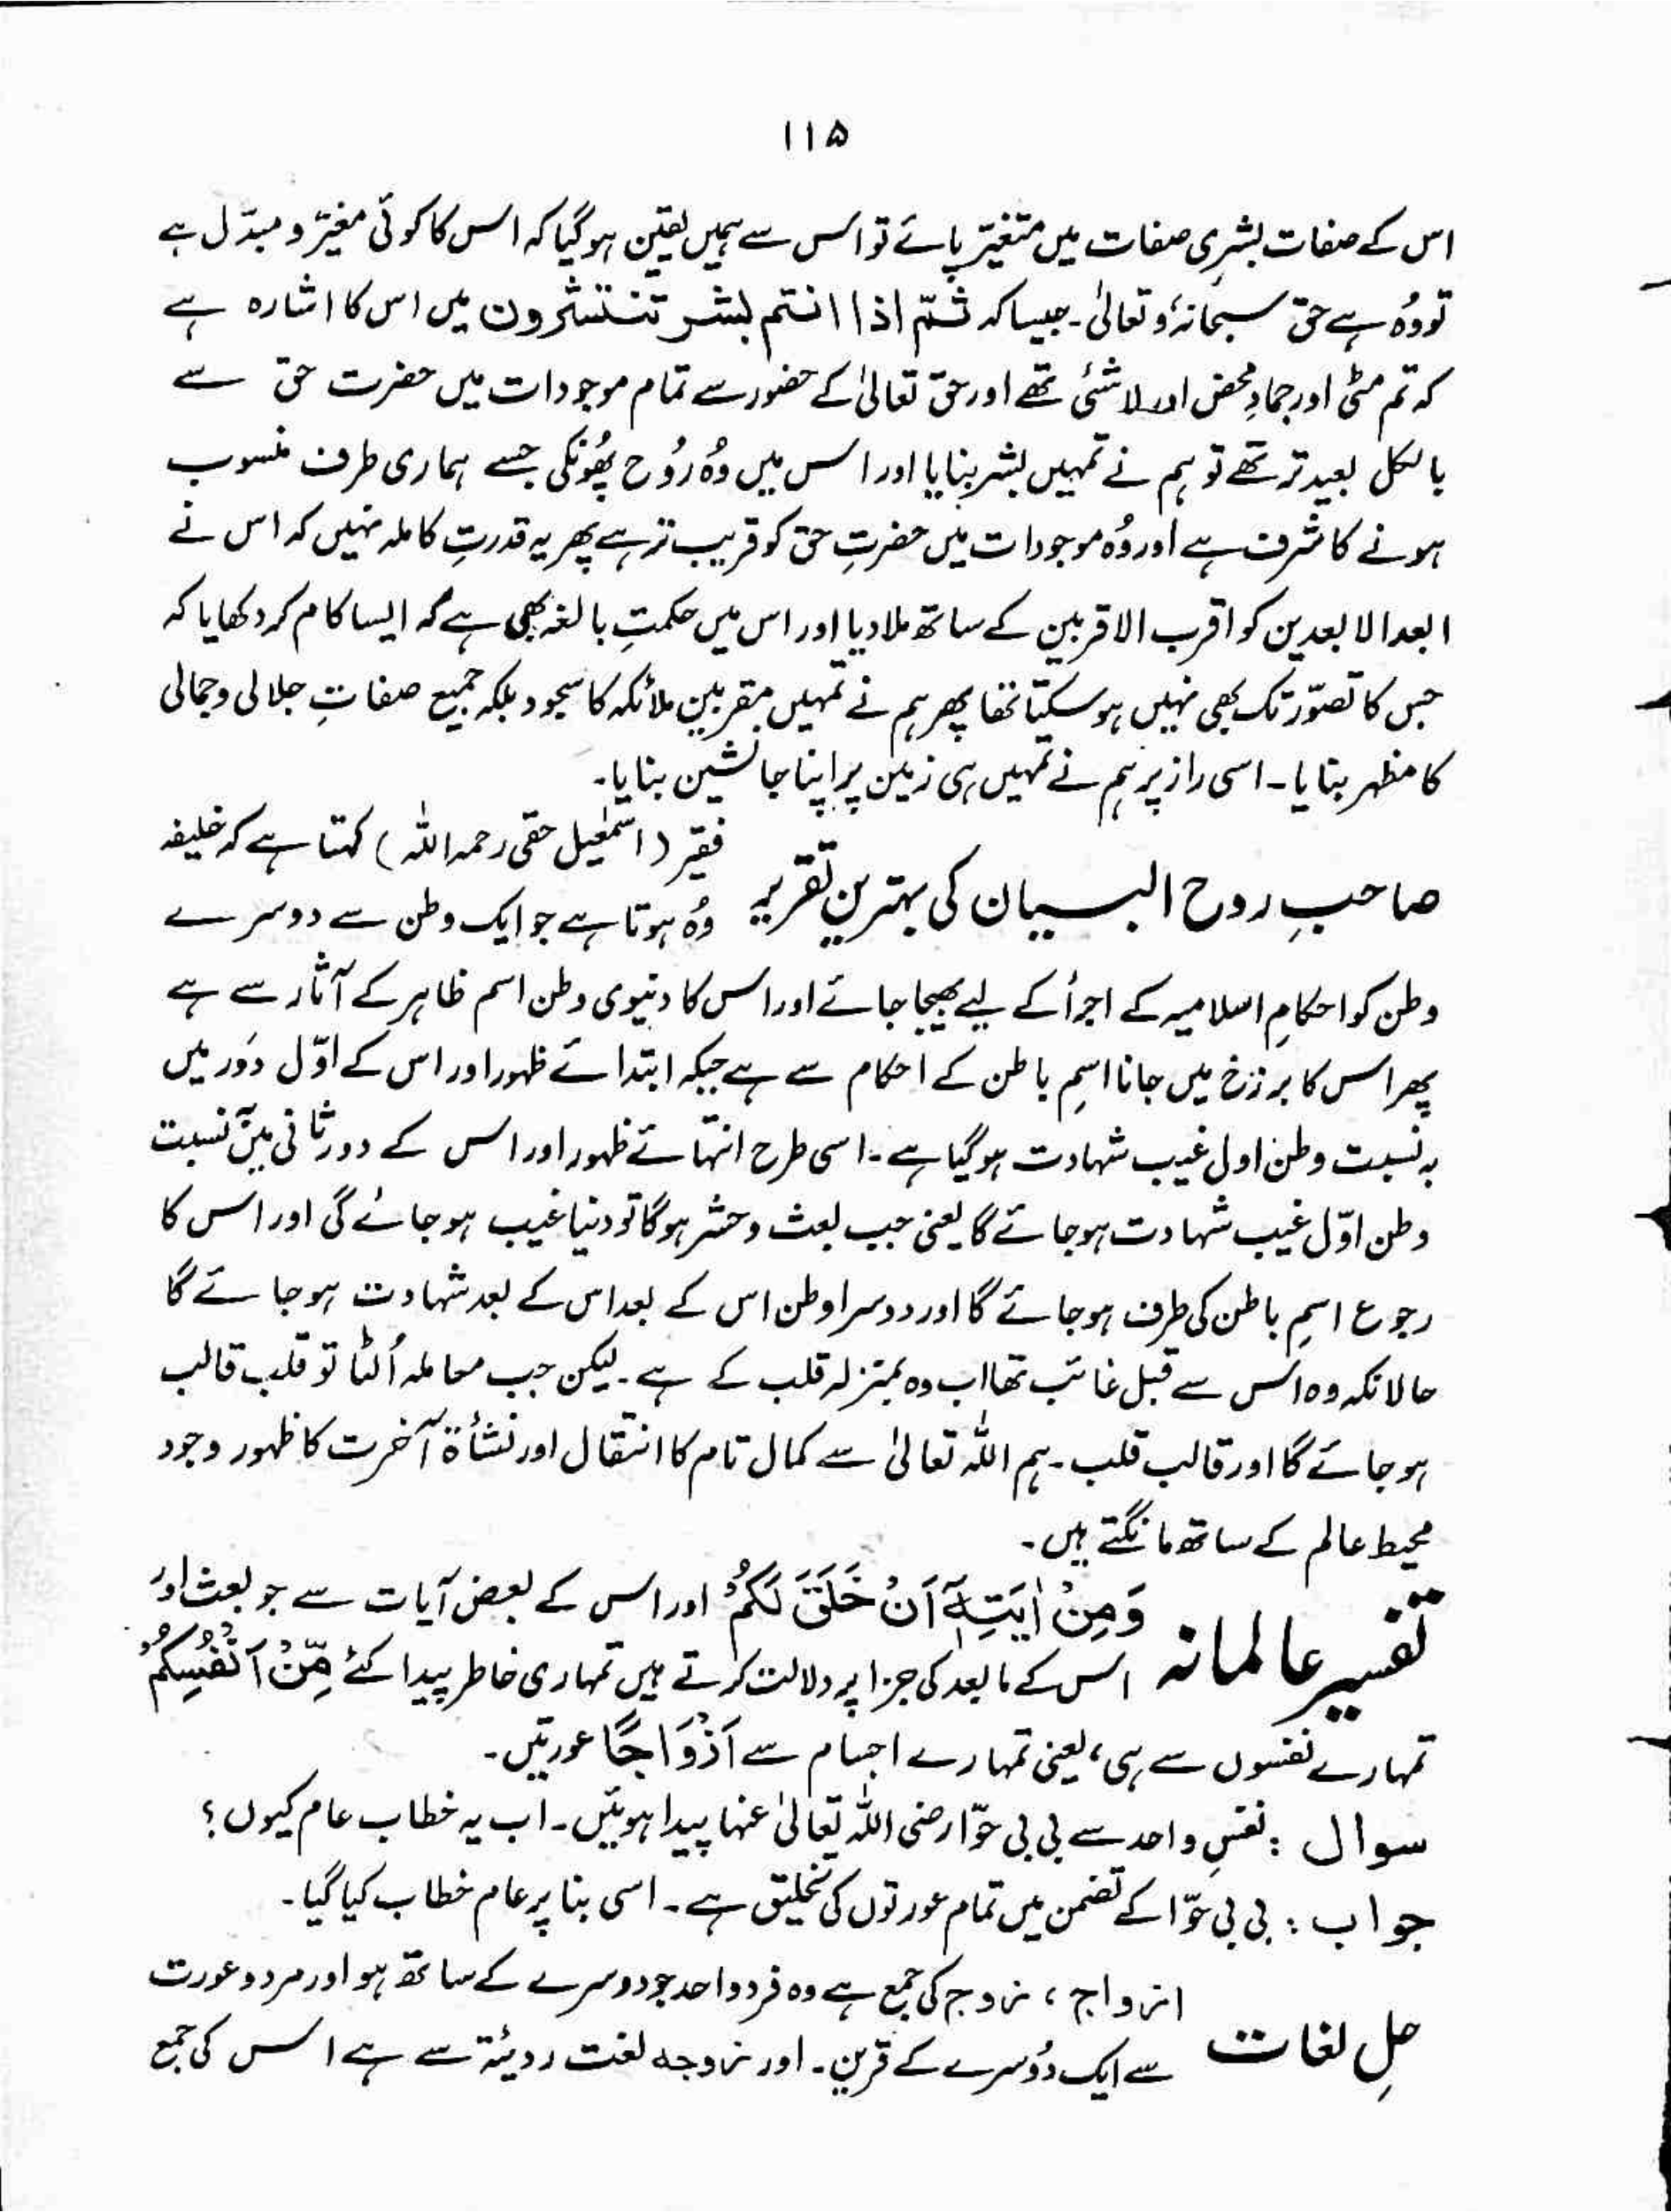 ۱۱۵
اس کے صفات بشری صفات میں متغیّر پائے تو اس سے ہمیں یقین ہو گیا کہ اس کا کوئی مغیّر و مبدّل ہے
تو وُہ ہے حق سبحانہٗ و تعالیٰ۔ جیسا کہ ثمّ اذا انتم بشر تنتشرون میں اس کا اشارہ ہے
کہ تم مٹی اور جمادِ محض اور لا شئی تھے اور حق تعالیٰ کے حضور سے تمام موجودات میں حضرت حق سے
بالکل بعید تر تھے تو ہم نے تمہیں بشر بنایا اور اس میں وُہ رُوح پھُونکی جسے ہماری طرف منسوب
ہونے کا شرف ہے اور وُہ موجودات میں حضرتِ حق کو قریب تر ہے پھر یہ قدرتِ کاملہ نہیں کہ اس نے
ابعد الابعدین کو اقرب الاقربین کے ساتھ ملا دیا اور اس میں حکمتِ بالغہ بھی ہے کہ ایسا کام کر دکھایا کہ
جس کا تصوّر تک بھی نہیں ہو سکتا تھا پھر ہم نے تمہیں مقربین ملائکہ کا سجود بلکہ جمیع صفاتِ جلالی و جمالی
کا مظہر بنایا۔ اسی راز پر ہم نے تمہیں ہی زمین پر اپنا جانشین بنایا۔
صاحبِ روح البیان کی بہترین تقریر فقیر (اسمٰعیل حقی رحمہ اللہ) کہتا ہے کہ خلیفہ
وُہ ہوتا ہے جو ایک وطن سے دوسرے
وطن کو احکامِ اسلامیہ کے اجرأ کے لیے بھیجا جائے اور اس کا دنیوی وطن اسم ظاہر کے آثار سے ہے
پھر اس کا برزخ میں جانا اسمِ باطن کے احکام سے ہے جبکہ ابتدائے ظہور اور اس کے اوّل دَور میں
بہ نسبت وطن اول غیب شہادت ہو گیا ہے۔ اسی طرح انتہائے ظہور اور اس کے دور ثانی میں نسبت
وطن اوّل غیب شہادت ہو جائے گا یعنی جب بعث و حشر ہوگا تو دنیا غیب ہو جائے گی اور اس کا
رجوع اسمِ باطن کی طرف ہو جائے گا اور دوسرا وطن اس کے بعد اس کے بعد شہادت ہو جائے گا
حالانکہ وہ اس سے قبل غائب تھا اب وہ بمنزلہ قلب کے ہے۔ لیکن جب معاملہ اُلٹا تو قلب قالب
ہو جائے گا اور قالب قلب۔ ہم اللہ تعالیٰ سے کمال تام کا انتقال اور نشأۃ آخرت کا ظہور وجود
محیط عالم کے ساتھ مانگتے ہیں۔
تفسیر عالمانہ وَمِنْ اٰیٰتِہٖٓ اَنْ خَلَقَ لَکُمْ اور اس کے بعض آیات سے جو بعث اور
اس کے مابعد کی جزا پر دلالت کرتے ہیں تمہاری خاطر پیدا کئے مِّنْ اَنْفُسِکُمْ
تمہارے نفسوں سے ہی، یعنی تمہارے اجسام سے اَزْوَاجًا عورتیں۔
سوال : نفسِ واحد سے بی بی حوّا رضی اللہ تعالیٰ عنہا پیدا ہوئیں۔ اب یہ خطاب عام کیوں؟
جواب : بی بی حوّا کے تضمن میں تمام عورتوں کی تخلیق ہے۔ اسی بنا پر عام خطاب کیا گیا۔
حلِ لغات ازواج ، زوج کی جمع ہے وہ فرد واحد جو دوسرے کے ساتھ ہو اور مرد و عورت
سے ایک دُوسرے کے قرین۔ اور زوجہ لغت ردیئۃ سے ہے اس کی جمع